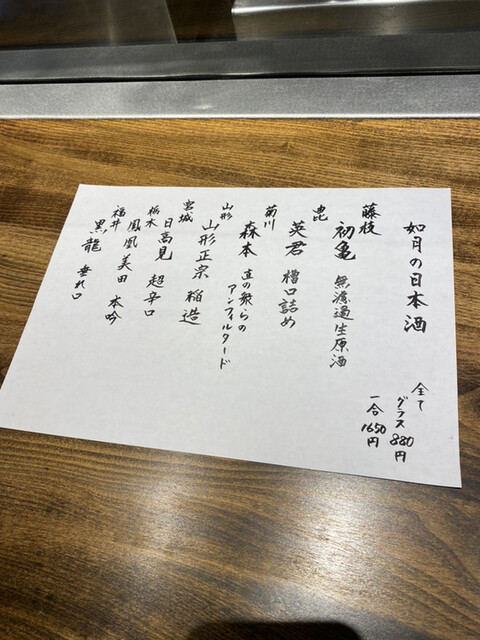 如月の日本酒
藤枝
初亀 無濾過生原酒
英君 槽口詰め
菊川
森本
アンフィルタード
山形
山形正宗 稲造
宮城
日高見 超辛口
栃木
鳳凰美田 本吟
福井
黒龍 垂れ口
全て
グラス 880円
一合 1650円